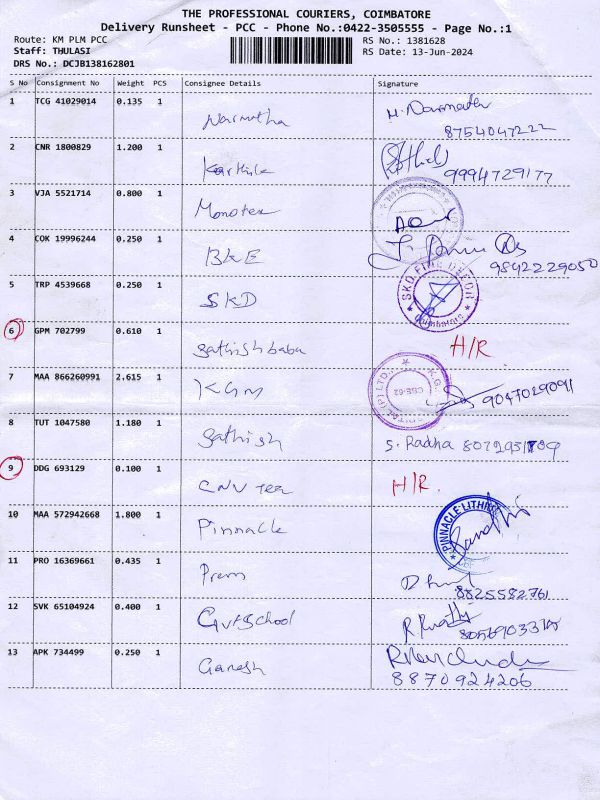 THE PROFESSIONAL COURIERS, COIMBATORE
Delivery Runsheet - PCC - Phone No.:0422-3505555 - Page No.:1
Route: KM PLM PCC
RS No.: 1381628
Staff: THULASI
RS Date: 13-Jun-2024
DRS No.: DCJB138162801
S No Consignment No Weight PCS Consignee Details Signature
1 TCG 41029014 0.135 1
8754047222
2 CNR 1800829 1.200 1 Karthik
9994729177
3 VJA 5521714 0.800 1 Monotex
4 COK 19996244 0.250 1 BKE
9842229050
5 TRP 4539668 0.250 1 SKD
6 GPM 702799 0.610 1 Sathishbabu H/R
7 MAA 866260991 2.615 1 KGM
9047029091
8 TUT 1047580 1.180 1 Sathish S. Radha
9 DDG 693129 0.100 1 CNV Tex H/R.
10 MAA 572942668 1.800 1 Pinnacle PINNACLE
11 PRO 16369661 0.435 1 Prem
8825582761
12 SVK 65104924 0.400 1 Gvt School
13 APK 734499 0.250 1 Ganesh
8870924206